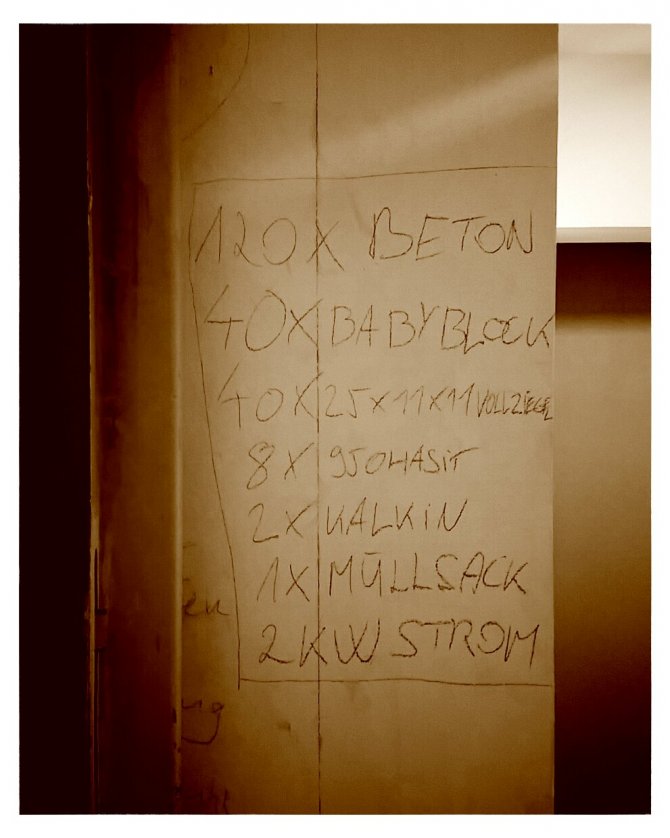 120X BETON
40X BABYBLOCK
40X 25x11x11 VOLLZIEGEL
8X 950HASIT
2X KALKIN
1X MÜLLSACK
en
2KW STROM
ng